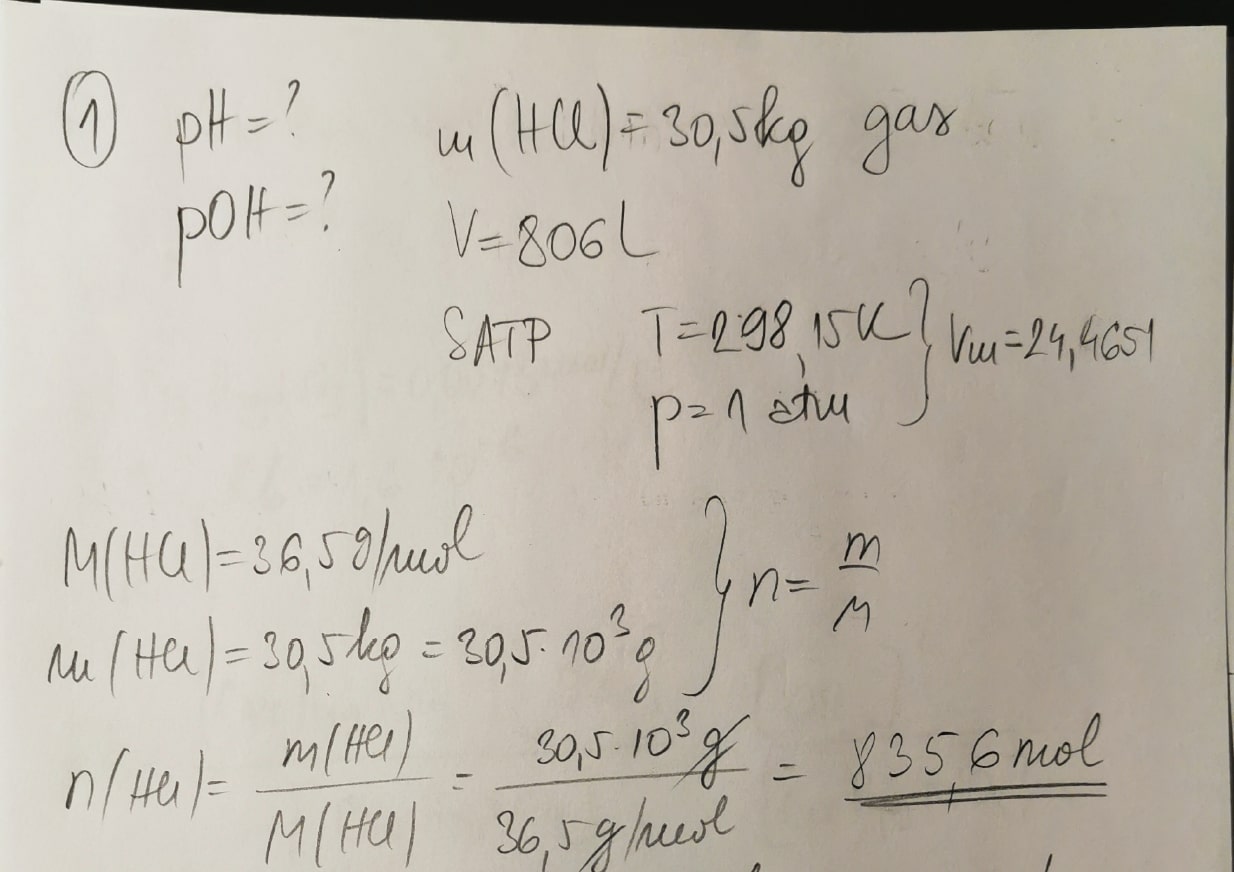 ① pH = ? m(HCl) = 30,5kg gas
pOH = ? V = 806 L
SATP T = 298,15K } Vm = 24,4651
p = 1 atm
M(HCl) = 36,5 g/mol } n = m/M
m(HCl) = 30,5kg = 30,5·10³ g
n(HCl) = m(HCl)/M(HCl) = 30,5·10³ g/36,5 g/mol = 835,6 mol